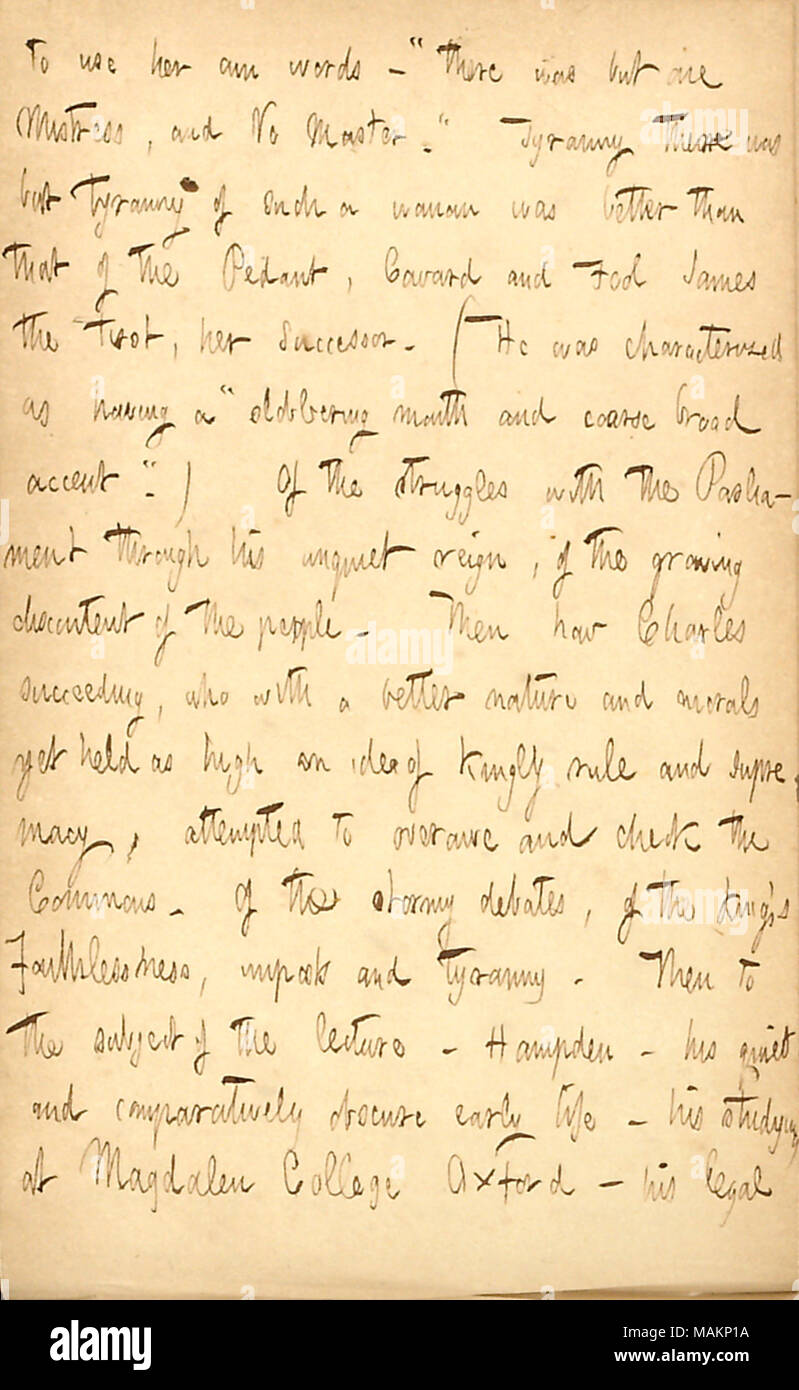 to use her own words - "there was but one
Mistress, and No Master." Tyranny there was
but tyranny of such a woman was better than
that of the Pedant, Coward and Fool James
the First, her Successor. (He was characterized
as having a "slobbering mouth and coarse broad
accent".) Of the struggles with the Parlia-
ment through his unquiet reign, of the growing
discontent of the people. Then how Charles
succeeding, who with a better nature and morals
yet held as high an idea of kingly rule and supre
macy, attempted to overawe and check the
Commons. Of the stormy debates, of the King's
Faithlessness, imposts and tyranny. Then to
the subject of the lecture - Hampden - his quiet
and comparatively obscure early life - his studying
at Magdalen College Oxford - his legal
alamy
Image ID: MAKP1A
www.alamy.com